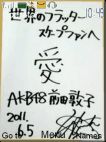 10:49
世界のフラッター
スケープファンへ
愛
AKB48 前田敦子
2011.
6.5
Go to
Menu
Names